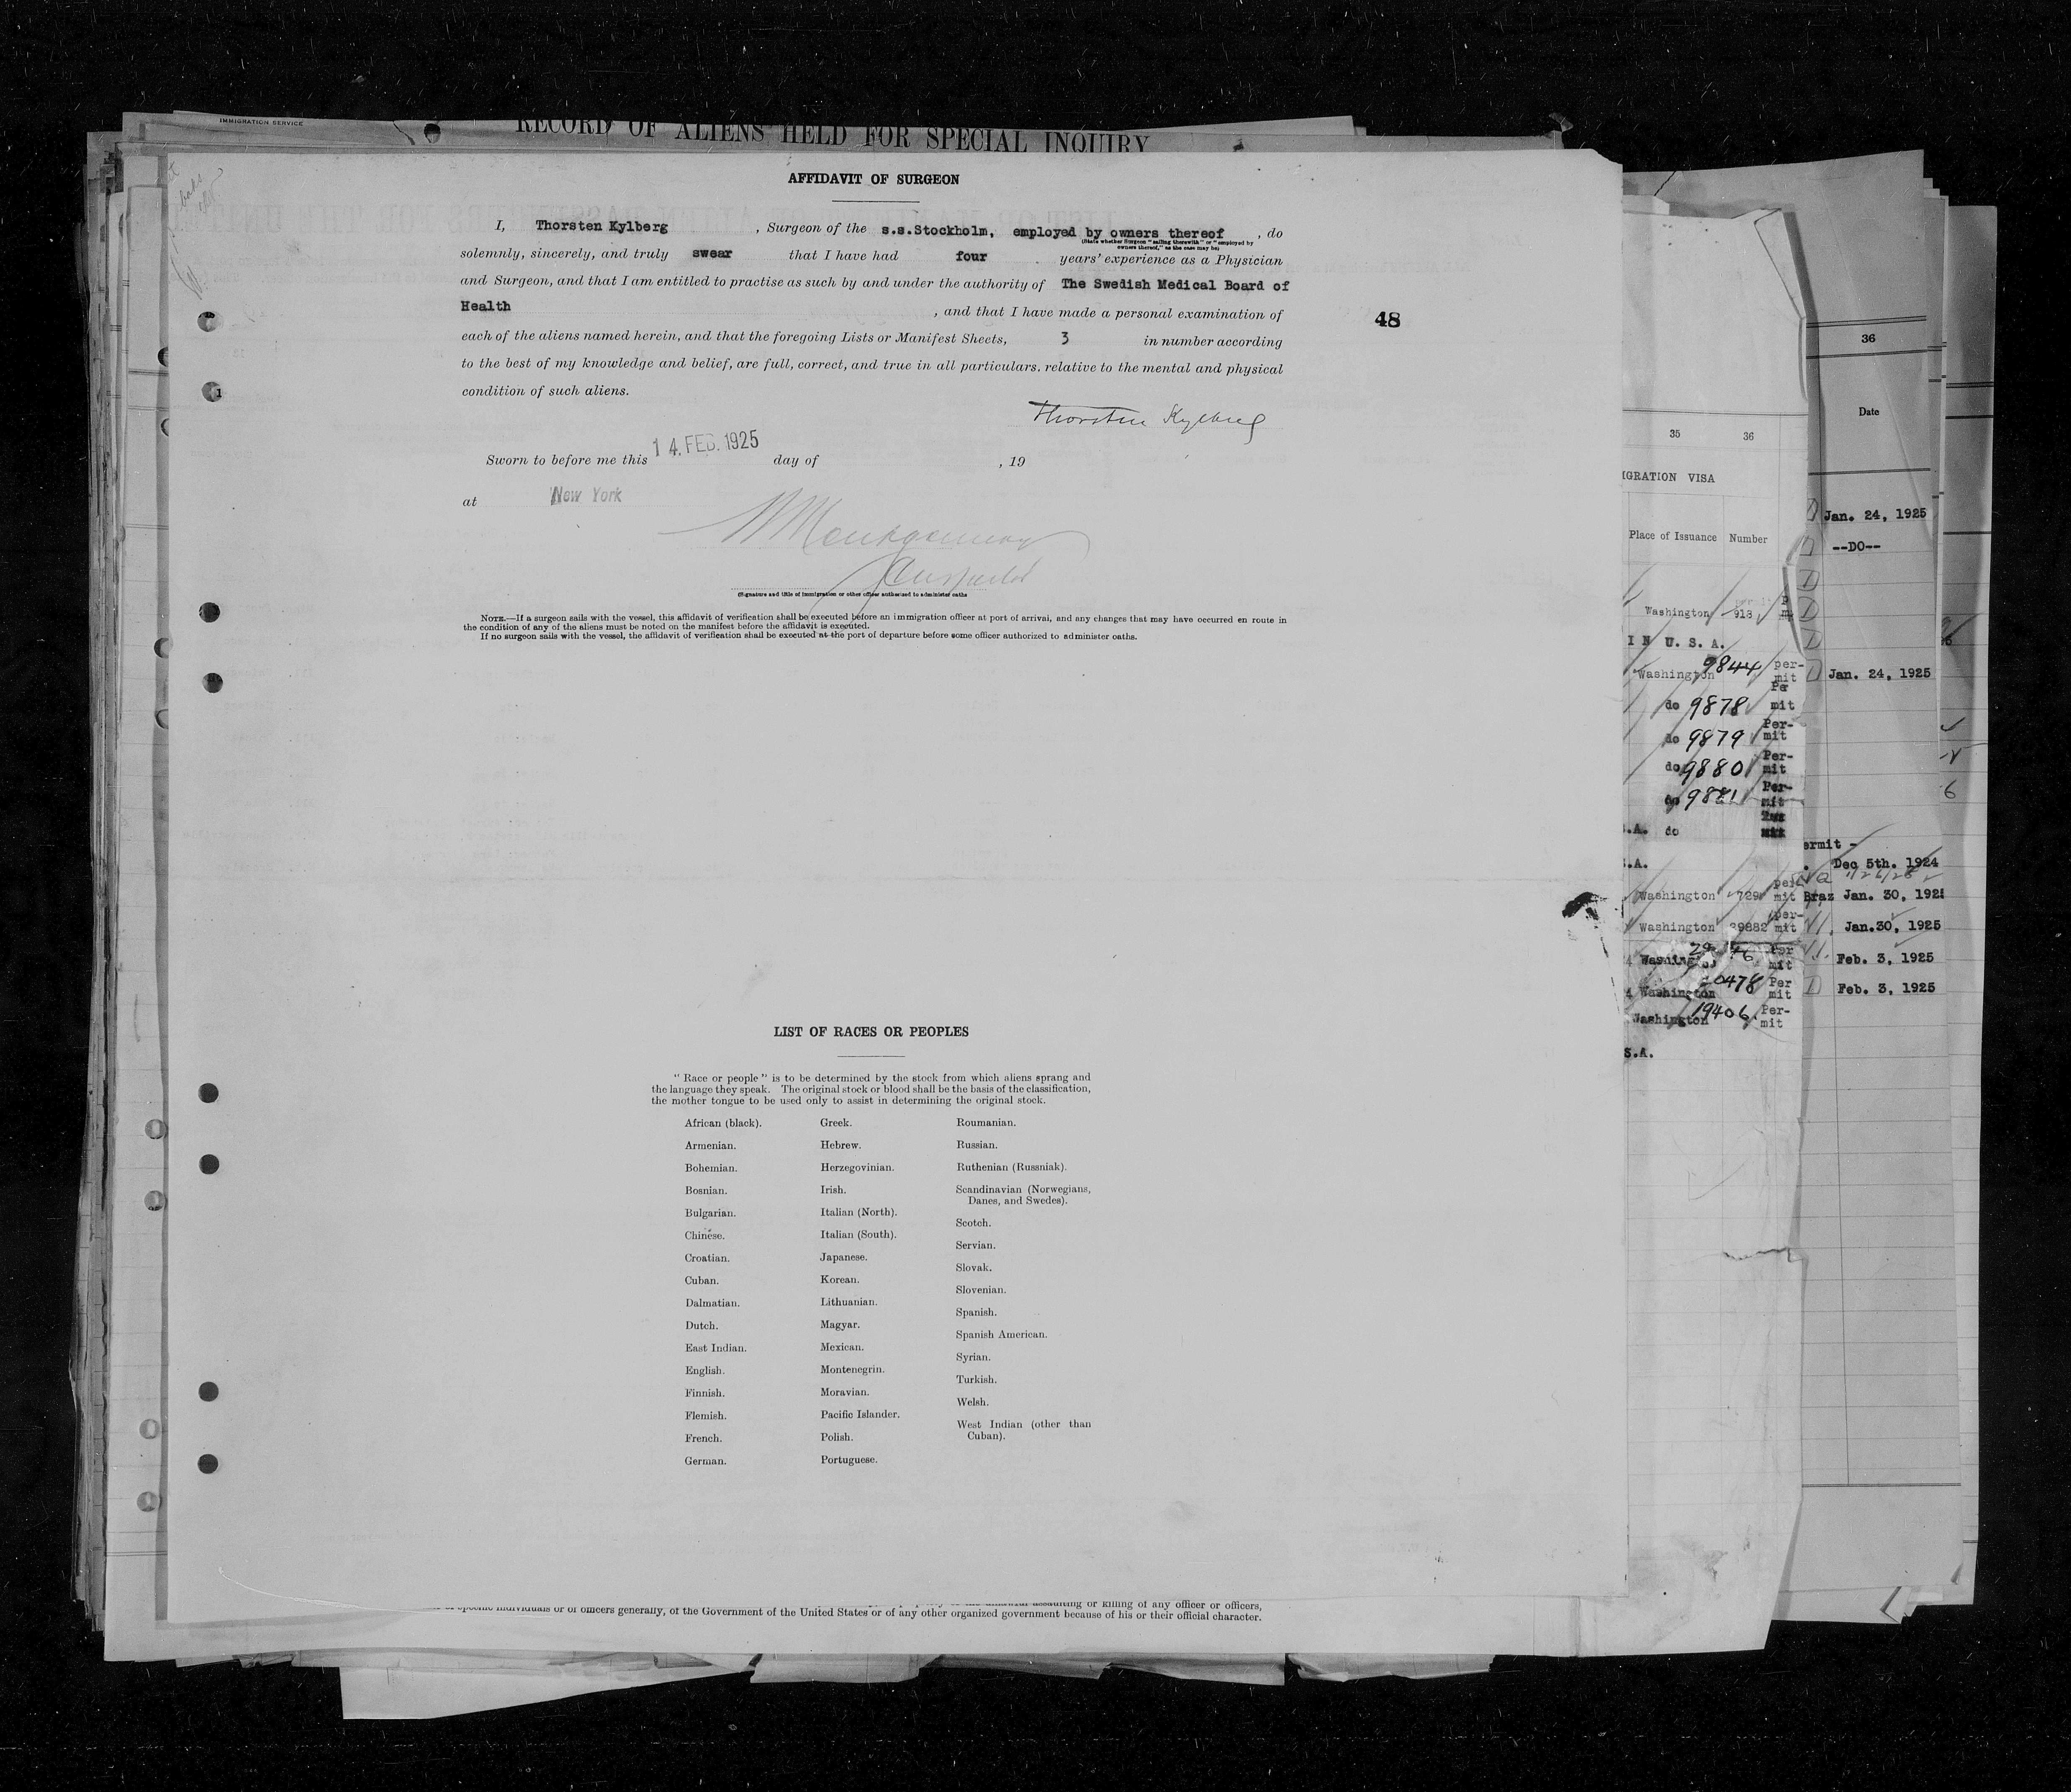 IMMIGRATION SERVICE
RECORD OF ALIENS HELD FOR SPECIAL INQUIRY
AFFIDAVIT OF SURGEON
I, Thorsten Kylberg , Surgeon of the s.s.Stockholm, employed by owners thereof , do
(State whether Surgeon "sailing therewith" or "employed by
owners thereof," as the case may be)
solemnly, sincerely, and truly swear that I have had four years' experience as a Physician
and Surgeon, and that I am entitled to practise as such by and under the authority of The Swedish Medical Board of
Health , and that I have made a personal examination of
each of the aliens named herein, and that the foregoing Lists or Manifest Sheets, 3 in number according
to the best of my knowledge and belief, are full, correct, and true in all particulars. relative to the mental and physical
condition of such aliens.
48
Thorsten Kylberg
Sworn to before me this 14. FEB. 1925 day of , 19
at New York
Montgomery
Inspector
(Signature and title of immigration or other officer authorized to administer oaths
NOTE.—If a surgeon sails with the vessel, this affidavit of verification shall be executed before an immigration officer at port of arrival, and any changes that may have occurred en route in
the condition of any of the aliens must be noted on the manifest before the affidavit is executed.
If no surgeon sails with the vessel, the affidavit of verification shall be executed at the port of departure before some officer authorized to administer oaths.
LIST OF RACES OR PEOPLES
"Race or people" is to be determined by the stock from which aliens sprang and
the language they speak. The original stock or blood shall be the basis of the classification,
the mother tongue to be used only to assist in determining the original stock.
African (black).
Armenian.
Bohemian.
Bosnian.
Bulgarian.
Chinese.
Croatian.
Cuban.
Dalmatian.
Dutch.
East Indian.
English.
Finnish.
Flemish.
French.
German.
Greek.
Hebrew.
Herzegovinian.
Irish.
Italian (North).
Italian (South).
Japanese.
Korean.
Lithuanian.
Magyar.
Mexican.
Montenegrin.
Moravian.
Pacific Islander.
Polish.
Portuguese.
Roumanian.
Russian.
Ruthenian (Russniak).
Scandinavian (Norwegians,
Danes, and Swedes).
Scotch.
Servian.
Slovak.
Slovenian.
Spanish.
Spanish American.
Syrian.
Turkish.
Welsh.
West Indian (other than
Cuban).
individuals or of officers generally, of the Government of the United States or of any other organized government because of his or their official character.
assaulting or killing of any officer or officers,
35 36
IGRATION VISA
Place of Issuance Number
Washington 913
IN U. S. A.
Washington 9844 per-
mit
do 9878 Per
mit
do 9879 Per-
mit
do 9880 Per-
mit
do 9881 Per-
mit
S.A. do
S.A.
Washington 729 per
mit
Washington 39882 per-
mit
Washington Per
mit
Washington 0478 Per
mit
Washington 19406 Per-
mit
S.A.
36
Date
Jan. 24, 1925
--DO--
Jan. 24, 1925
ermit -
Dec 5th. 1924
Braz Jan. 30, 192
Jan.30, 1925
Feb. 3, 1925
Feb. 3, 1925
6